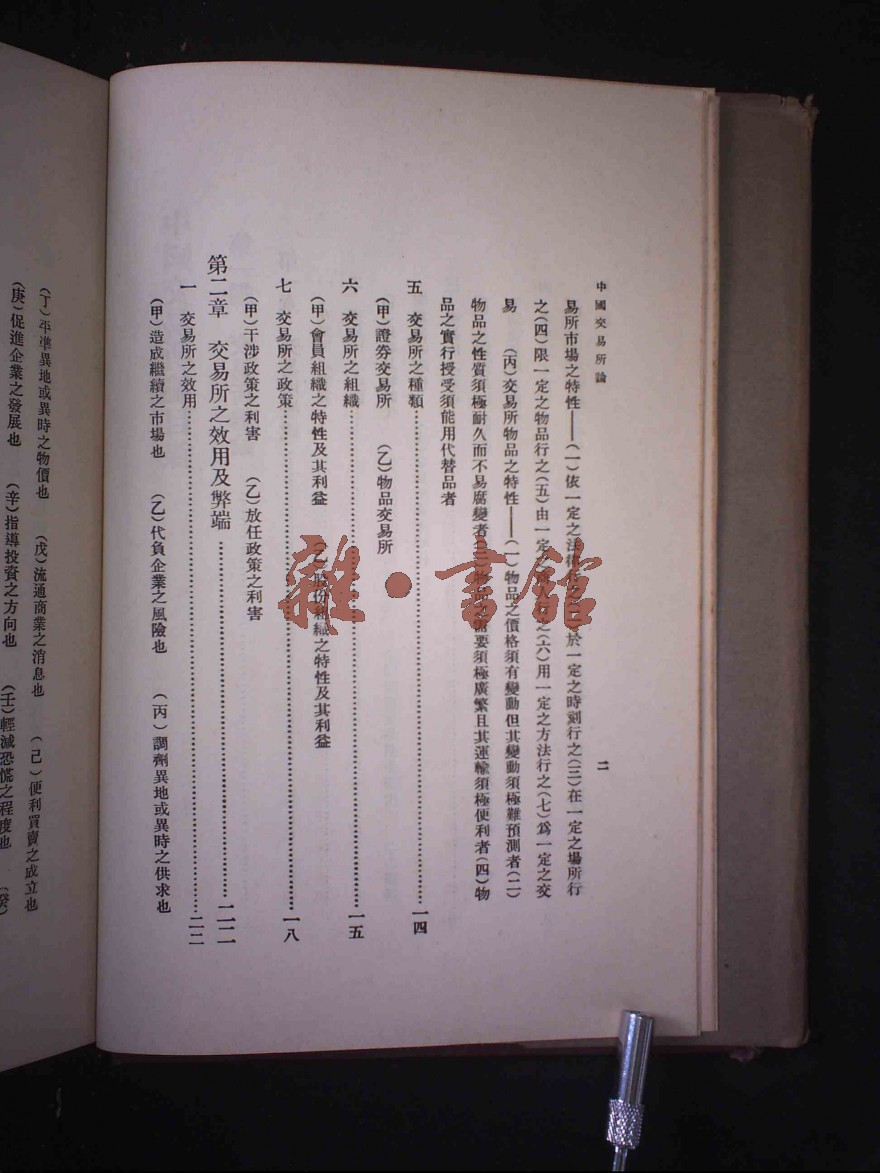 中國交易所論
二
易所市場之特性——(一)依一定之法律 於一定之時刻行之(三)在一定之場所行
之(四)限一定之物品行之(五)由一定之 之(六)用一定之方法行之(七)爲一定之交
易 (丙)交易所物品之特性——(一)物品之價格須有變動但其變動須極難預測者(二)
物品之性質須極耐久而不易腐變者 物品之 要須極廣繁且其運輸須極便利者(四)物
品之實行授受須能用代替品者
五 交易所之種類……一四
(甲)證券交易所 (乙)物品交易所
六 交易所之組織……一五
(甲)會員組織之特性及其利益 (乙)股份組織之特性及其利益
七 交易所之政策……一八
(甲)干涉政策之利害 (乙)放任政策之利害
第二章 交易所之效用及弊端……二二
一 交易所之效用……二二
(甲)造成繼續之市場也 (乙)代負企業之風險也 (丙)調劑異地或異時之供求也
(丁)平準異地或異時之物價也 (戊)流通商業之消息也 (己)便利買賣之成立也
(庚)促進企業之發展也 (辛)指導投資之方向也 (壬)輕減恐慌之程度也 (癸)
雜·書館